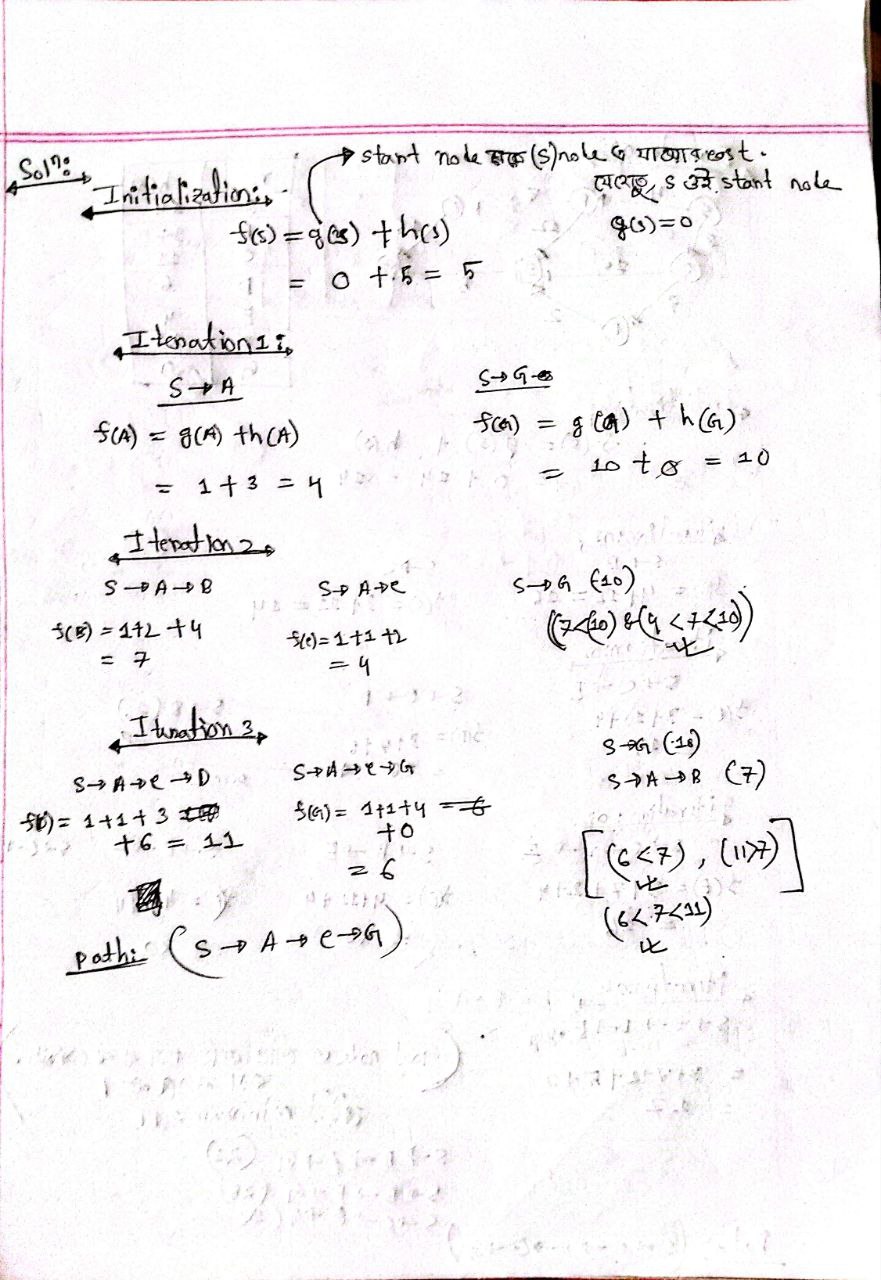 Solⁿ:
start node থেকে (S) node এ যাওয়ার cost.
যেহেতু, S ওই start node
g(s)=0
Initialization:
f(s) = g(s) + h(s)
= 0 + 5 = 5
Iteration 1:
S → A
f(A) = g(A) + h(A)
= 1 + 3 = 4
S → G
f(G) = g(G) + h(G)
= 10 + 0 = 10
Iteration 2
S → A → B
f(B) = 1+2 +4
= 7
S → A → C
f(C) = 1+1+2
= 4
S → G (10)
((7<10) & (4 < 7 < 10))
Iteration 3
S → A → C → D
f(D) = 1+1+3
+6 = 11
S → A → C → G
f(G) = 1+1+4
+0
= 6
S → G (10)
S → A → B (7)
[(6<7), (11>7)]
(6<7<11)
path: (S → A → C → G)